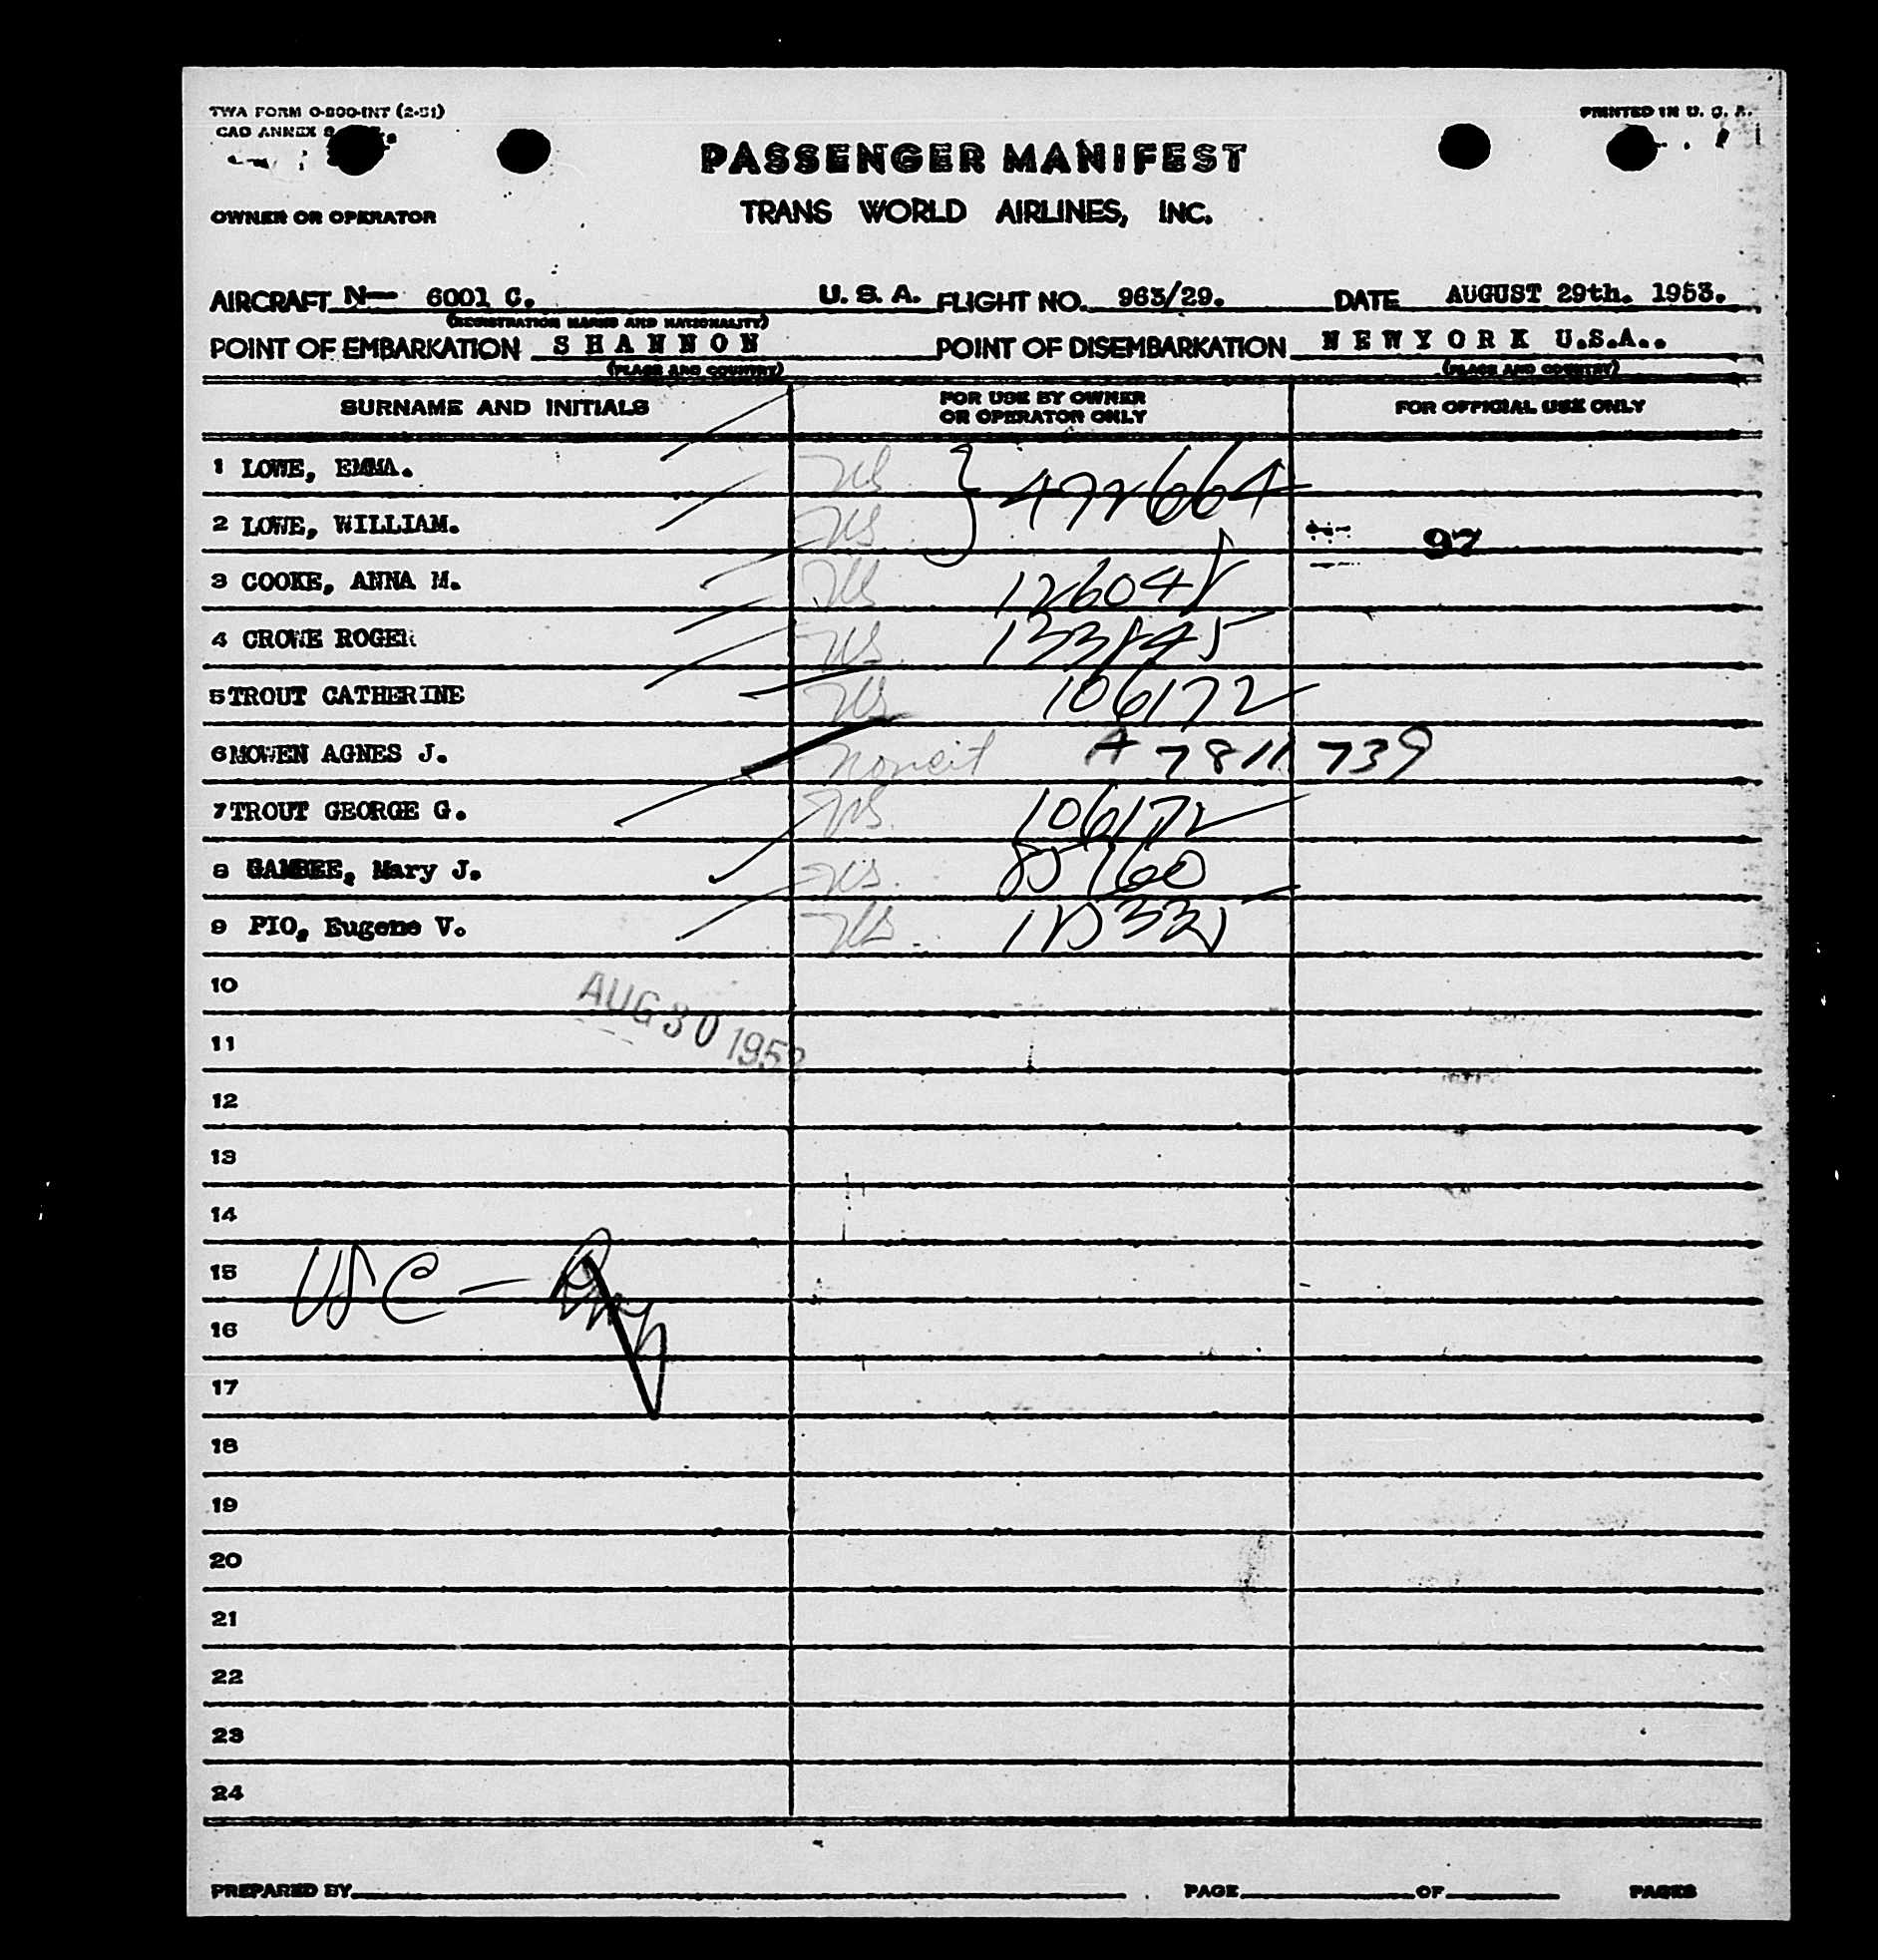 TWA FORM O-800-INT (2-51)
PRINTED IN U. S. A.
CAO ANNEX
PASSENGER MANIFEST
OWNER OR OPERATOR
TRANS WORLD AIRLINES, INC.
AIRCRAFT N— 6001 C. U. S. A. FLIGHT NO. 963/29. DATE AUGUST 29th. 1953.
(REGISTRATION MARKS AND NATIONALITY)
POINT OF EMBARKATION S H A N N O N POINT OF DISEMBARKATION N E W Y O R K U.S.A..
(PLACE AND COUNTRY) (PLACE AND COUNTRY)
SURNAME AND INITIALS FOR USE BY OWNER OR OPERATOR ONLY FOR OFFICIAL USE ONLY
1 LOWE, EMMA. US } 472664
2 LOWE, WILLIAM. US
97
3 COOKE, ANNA M. US 126048
4 CROWE ROGER US 133845
5 TROUT CATHERINE US 106172
6 MOWEN AGNES J. noncit A 7811739
7 TROUT GEORGE G. US 106172
8 GAMBEE, Mary J. US
9 PIO, Eugene V. US
10
AUG 30 1953
11
12
13
14
15 USC —
16
17
18
19
20
21
22
23
24
PREPARED BY PAGE OF PAGES